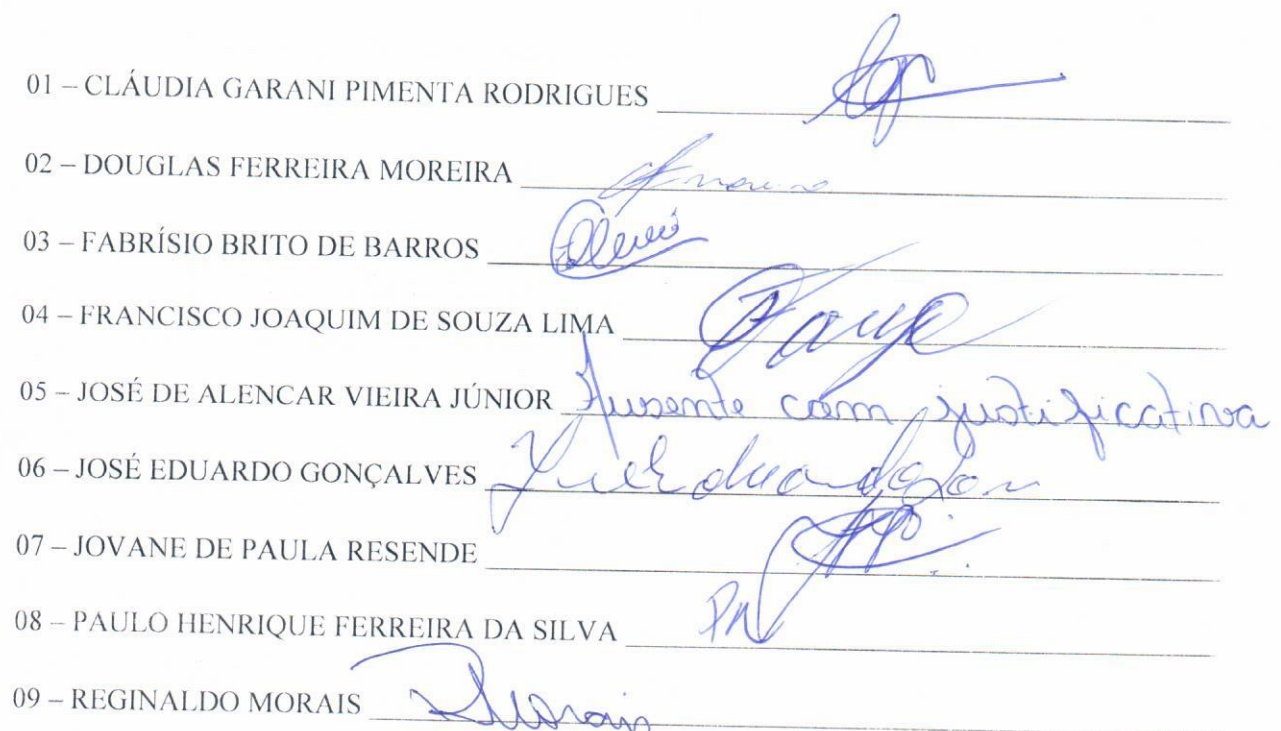 01 – CLÁUDIA GARANI PIMENTA RODRIGUES
02 – DOUGLAS FERREIRA MOREIRA
03 – FABRÍSIO BRITO DE BARROS
04 – FRANCISCO JOAQUIM DE SOUZA LIMA
05 – JOSÉ DE ALENCAR VIEIRA JÚNIOR Ausente com justificativa
06 – JOSÉ EDUARDO GONÇALVES
07 – JOVANE DE PAULA RESENDE
08 – PAULO HENRIQUE FERREIRA DA SILVA
09 – REGINALDO MORAIS